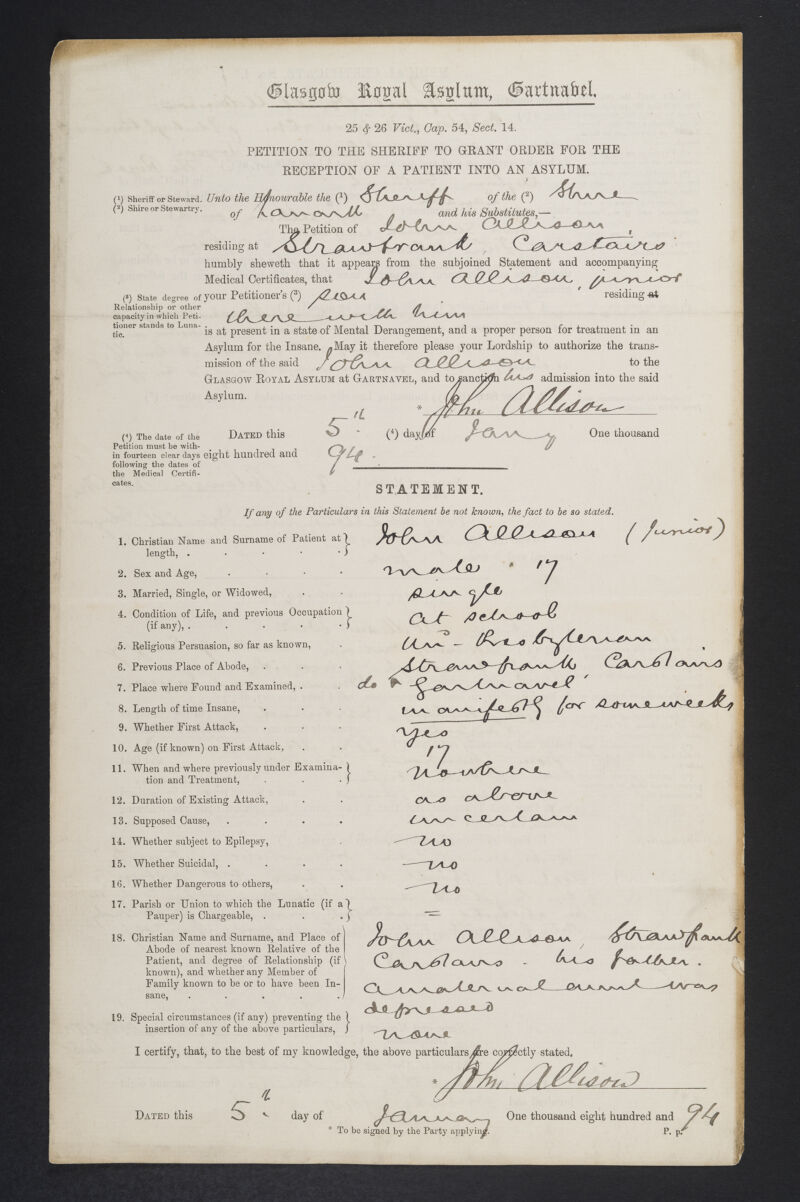 Glasgow Royal Asylum, Gartnabel.
25 & 26 Vict., Cap. 54, Sect. 14.
PETITION TO THE SHERIFF TO GRANT ORDER FOR THE
RECEPTION OF A PATIENT INTO AN ASYLUM.
(¹) Sheriff or Steward.
(²) Shire or Stewartry.
Unto the Honourable the (¹) Sheriff of the (²) Shire
of Lanark and his Substitutes,—
The Petition of John Allison,
residing at Strawfrank, Carstairs
humbly sheweth that it appears from the subjoined Statement and accompanying
Medical Certificates, that John Allison, junior
(³) State degree of
Relationship or other
capacity in which Peti-
tioner stands to Luna-
tic.
your Petitioner's (³) son residing at
there with him
is at present in a state of Mental Derangement, and a proper person for treatment in an
Asylum for the Insane. May it therefore please your Lordship to authorize the trans-
mission of the said John Allison to the
GLASGOW ROYAL ASYLUM AT GARTNAVEL, and to sanction his admission into the said
Asylum.
* John Allison
(⁴) The date of the
Petition must be with-
in fourteen clear days
following the dates of
the Medical Certifi-
cates.
DATED this 5th (⁴) day of Jany One thousand
eight hundred and 94.
STATEMENT.
If any of the Particulars in this Statement be not known, the fact to be so stated.
1. Christian Name and Surname of Patient at
length, . . . . . John Allison (Junior)
2. Sex and Age, . . . . male . 17
3. Married, Single, or Widowed, . . single
4. Condition of Life, and previous Occupation
(if any), . . . . . At school
5. Religious Persuasion, so far as known, . Un - Presbyterian
6. Previous Place of Abode, . . . Strawfrank Carstairs
7. Place where Found and Examined, . . do & Gartnavel
8. Length of time Insane, . . . manifestly for some weeks
9. Whether First Attack, . . . yes
10. Age (if known) on First Attack, . . 17
11. When and where previously under Examina-
tion and Treatment, . . . nowhere
12. Duration of Existing Attack, . . as above
13. Supposed Cause, . . . . uncertain
14. Whether subject to Epilepsy, . no
15. Whether Suicidal, . . . . no
16. Whether Dangerous to others, . . no
17. Parish or Union to which the Lunatic (if a
Pauper) is Chargeable, . . . =
18. Christian Name and Surname, and Place of
Abode of nearest known Relative of the
Patient, and degree of Relationship (if
known), and whether any Member of
Family known to be or to have been In-
sane, . . . . .
John Allison, Strawfrank
Carstairs - his father.
A maternal aunt was
depressed
19. Special circumstances (if any) preventing the
insertion of any of the above particulars, none
I certify, that, to the best of my knowledge, the above particulars are correctly stated.
* John Allison
DATED this 5th day of January One thousand eight hundred and 94
* To be signed by the Party applying.
P. p.